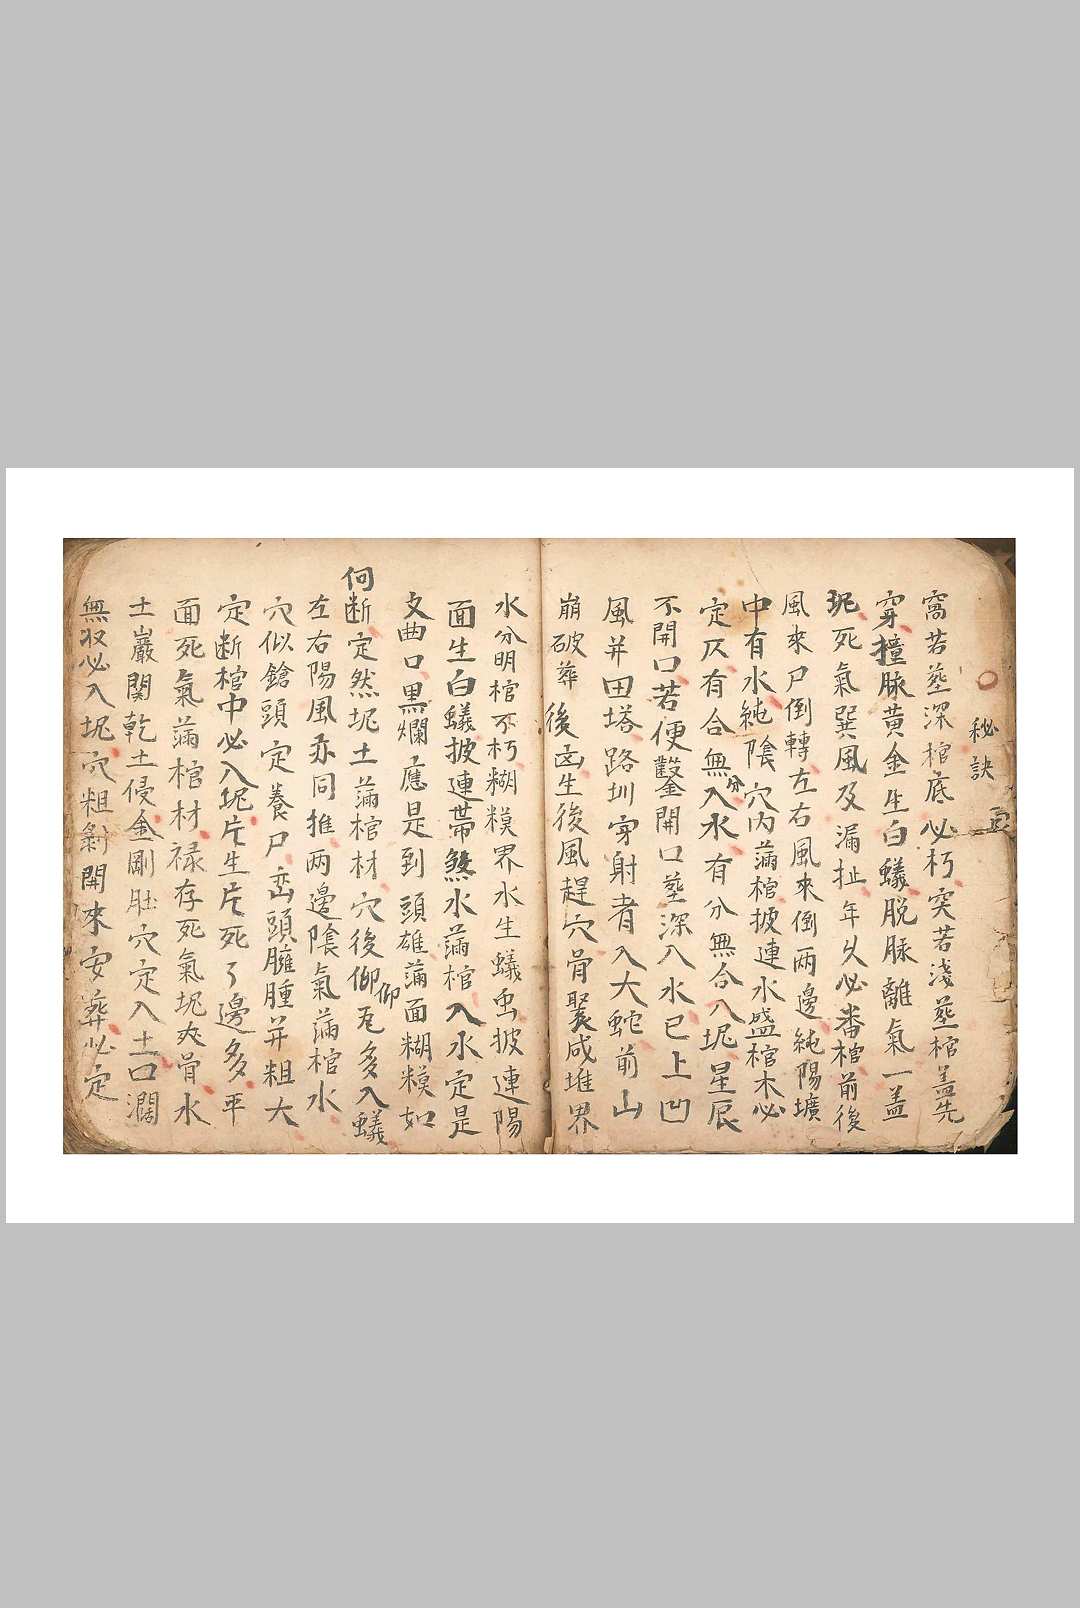 秘訣
窩若塟深棺底必朽突若淺塟棺盖先
穿撞脉黄金生白蟻脱脉離氣一盖
坭死氣巽風及漏扯年久必番棺前後
風來尸倒轉左右風來倒两邊純陽壙
中有水純陰穴内滿棺披連水盛棺木必
定仄有合無分入水有分無合入坭星辰
不開口若便鑿開口塟深入水已上凹
風并田塔路圳穿射者入大蛇前山
崩破葬後凼生後風趕穴骨聚成堆界
水分明棺不朽糊糢界水生蟻虫披連陽
面生白蟻披連帶煞水滿棺入水定是
文曲口黑爛應是到頭雄滿面糊糢如
何断定然坭土滿棺材穴後仰仰瓦多入蟻
左右陽風亦同推两邊陰氣滿棺水
穴似鎗頭定養尸巒頭臃腫并粗大
定断棺中必入坭片生片死了邊多平
面死氣滿棺材禄存死氣坭夾骨水
土巖関乾土侵金剛肚穴定入土口濶
無収必入坭穴粗剝開來安葬必定